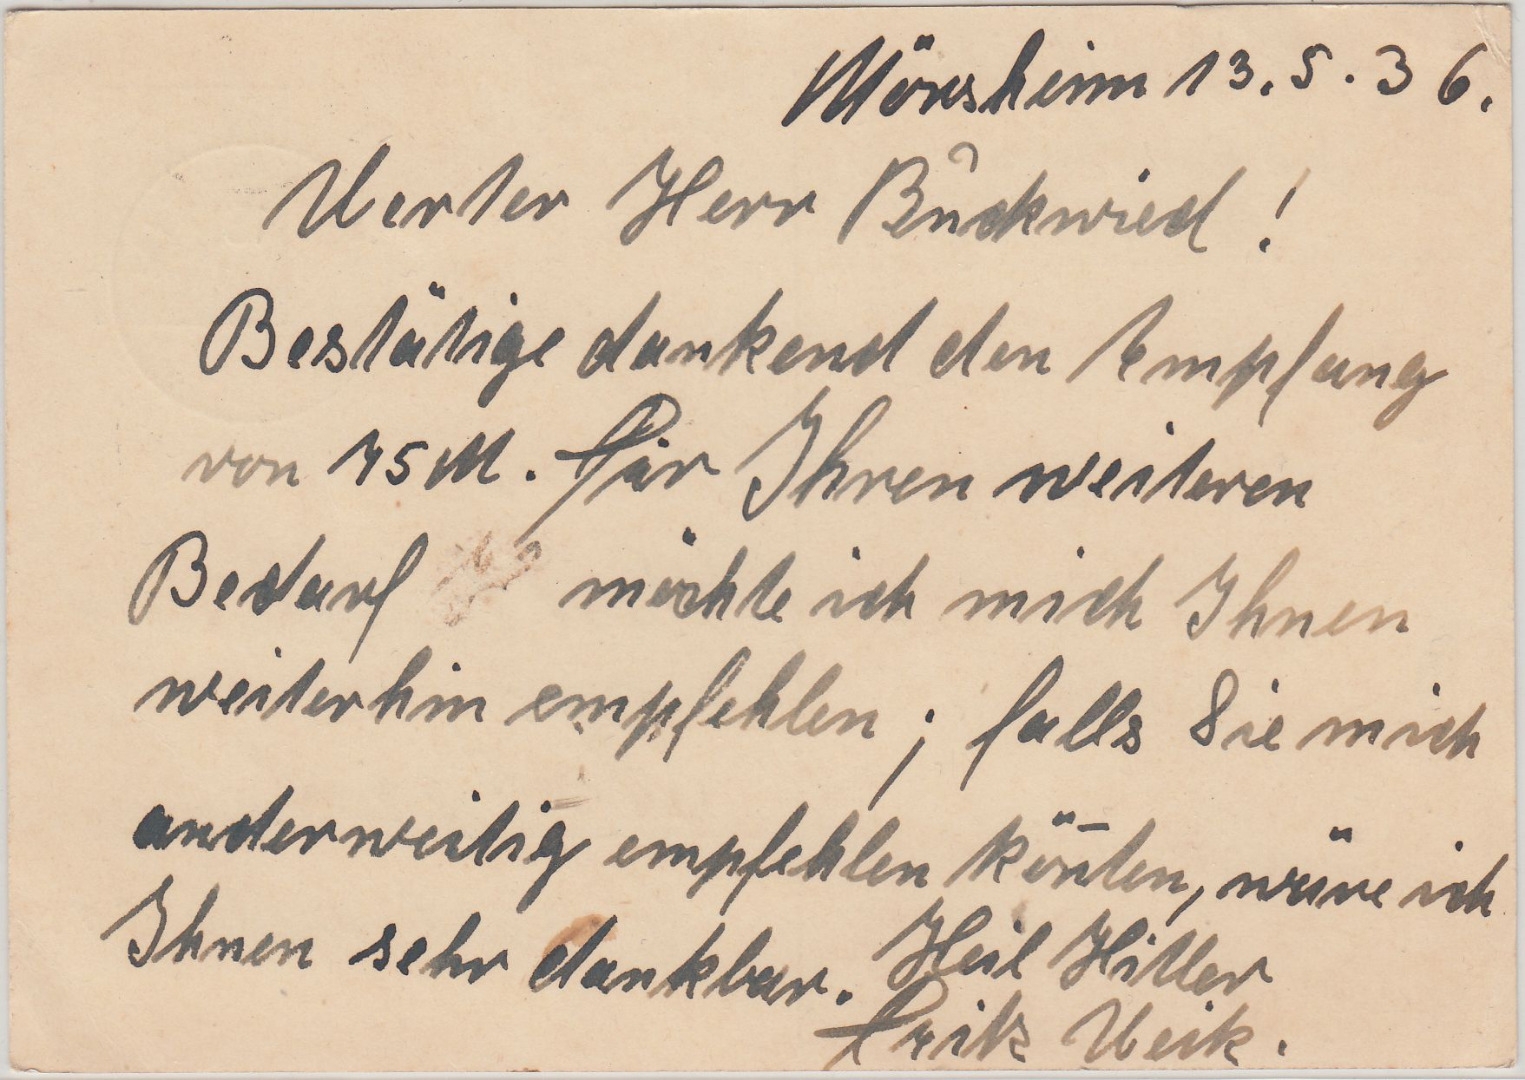 Mörsheim 13.5.36.
Werter Herr Bückwied!
Bestätige dankend den Empfang
von 45 M. Für Ihren weiteren
Bedarf möchte ich mich Ihnen
weiterhin empfehlen; falls Sie mich
anderweitig empfehlen kön̄ten, wäre ich
Ihnen sehr dankbar. Heil Hitler
Fritz Weik.